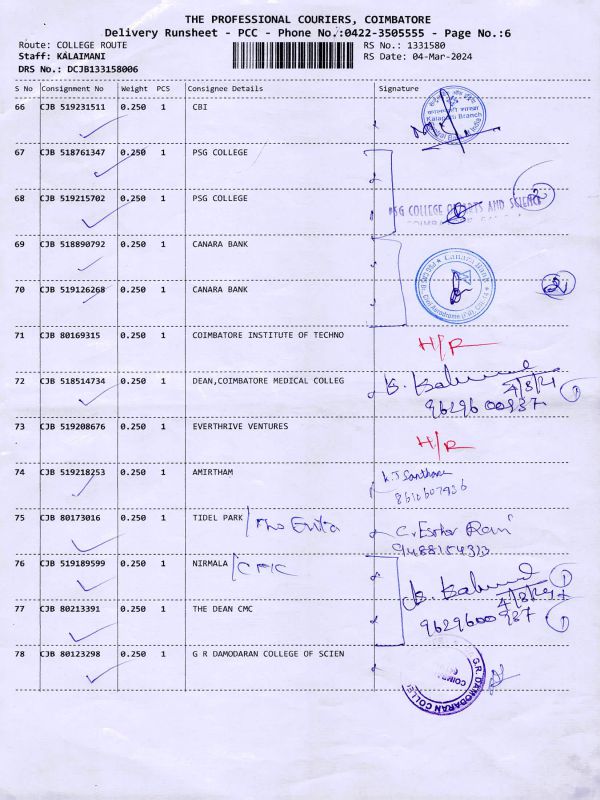 THE PROFESSIONAL COURIERS, COIMBATORE
Delivery Runsheet - PCC - Phone No.:0422-3505555 - Page No.:6
Route: COLLEGE ROUTE RS No.: 1331580
Staff: KALAIMANI RS Date: 04-Mar-2024
DRS No.: DCJB133158006
S No Consignment No Weight PCS Consignee Details Signature
66 CJB 519231511 0.250 1 CBI
Kalapatti Branch
67 CJB 518761347 0.250 1 PSG COLLEGE
68 CJB 519215702 0.250 1 PSG COLLEGE
PSG COLLEGE OF ARTS AND SCIENCE
69 CJB 518890792 0.250 1 CANARA BANK
Canara Bank
70 CJB 519126268 0.250 1 CANARA BANK
71 CJB 80169315 0.250 1 COIMBATORE INSTITUTE OF TECHNO H/R
72 CJB 518514734 0.250 1 DEAN,COIMBATORE MEDICAL COLLEG
4/3/24
9629600937 1
73 CJB 519208676 0.250 1 EVERTHRIVE VENTURES H/R
74 CJB 519218253 0.250 1 AMIRTHAM
75 CJB 80173016 0.250 1 TIDEL PARK
9488154313
76 CJB 519189599 0.250 1 NIRMALA CMC
1
77 CJB 80213391 0.250 1 THE DEAN CMC
9629600937 1
78 CJB 80123298 0.250 1 G R DAMODARAN COLLEGE OF SCIEN
G.R. DAMODARAN COLLEGE